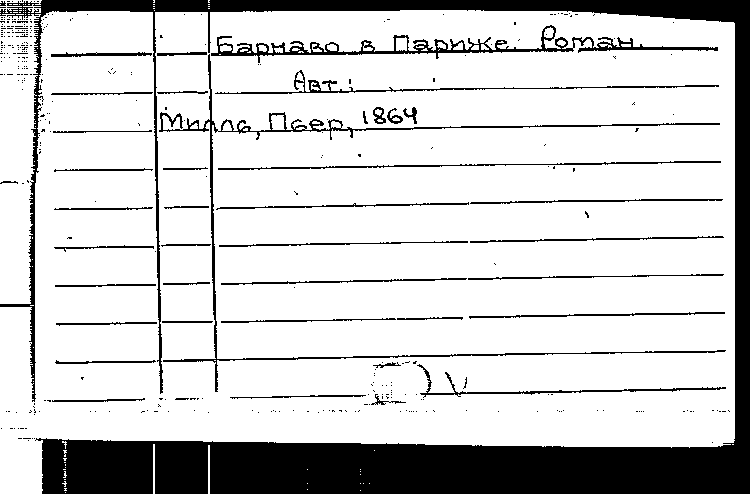 Барнаво в Париже. Роман.
Авт.:
Милль, Пьер, 1864
V